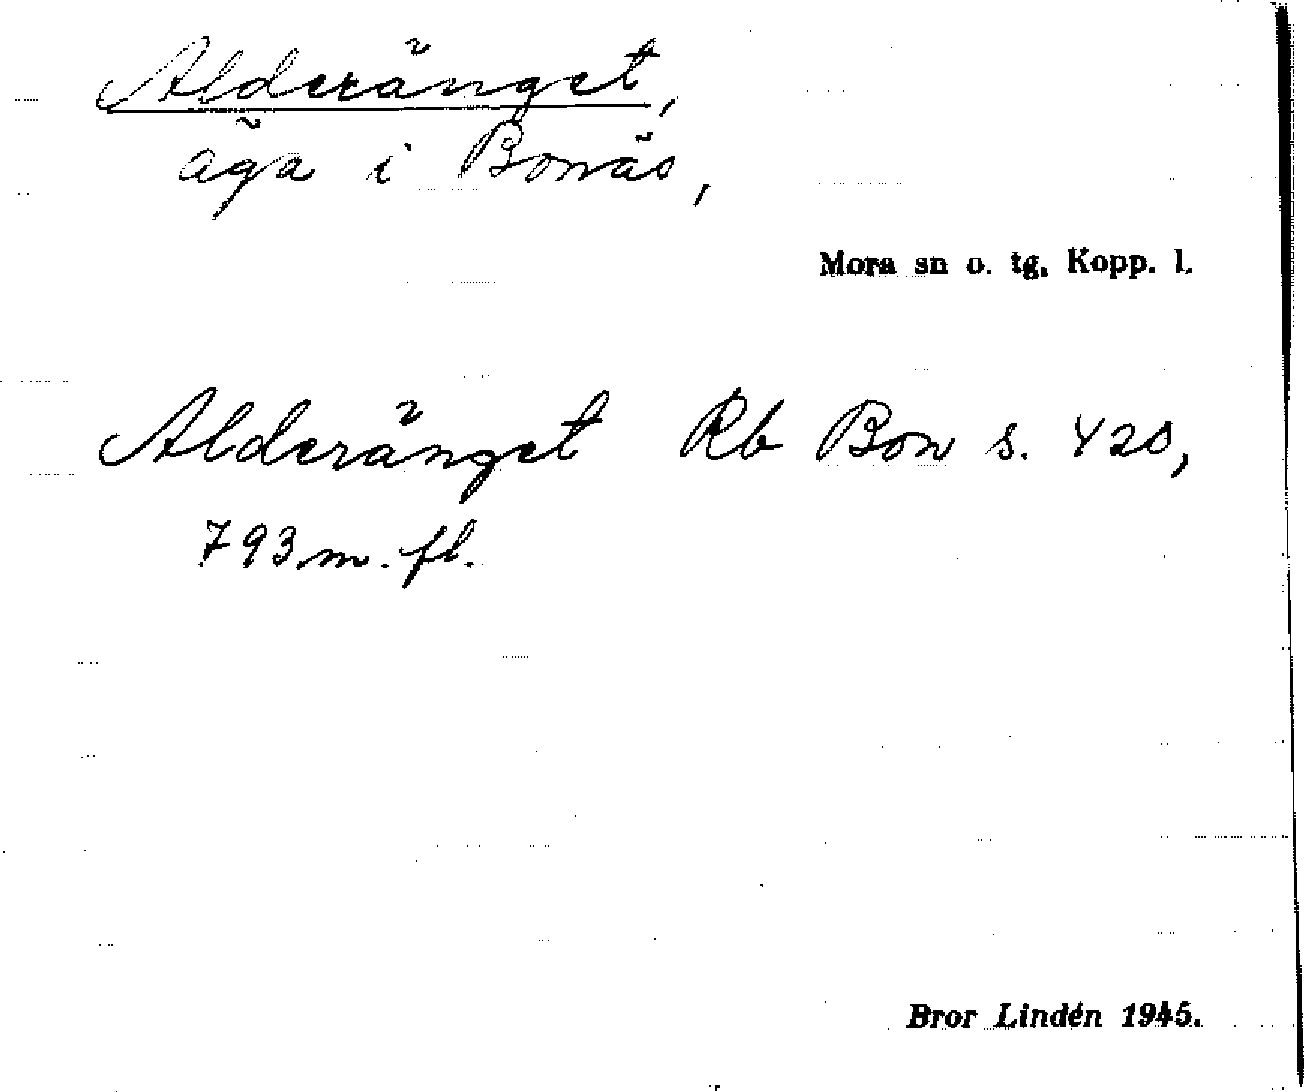 Alderänget,
äga i Bonäs,
Mora sn o. tg. Kopp. l.
Alderänget Rb Bon s. 420,
793 m. fl.
Bror Lindén 1945.